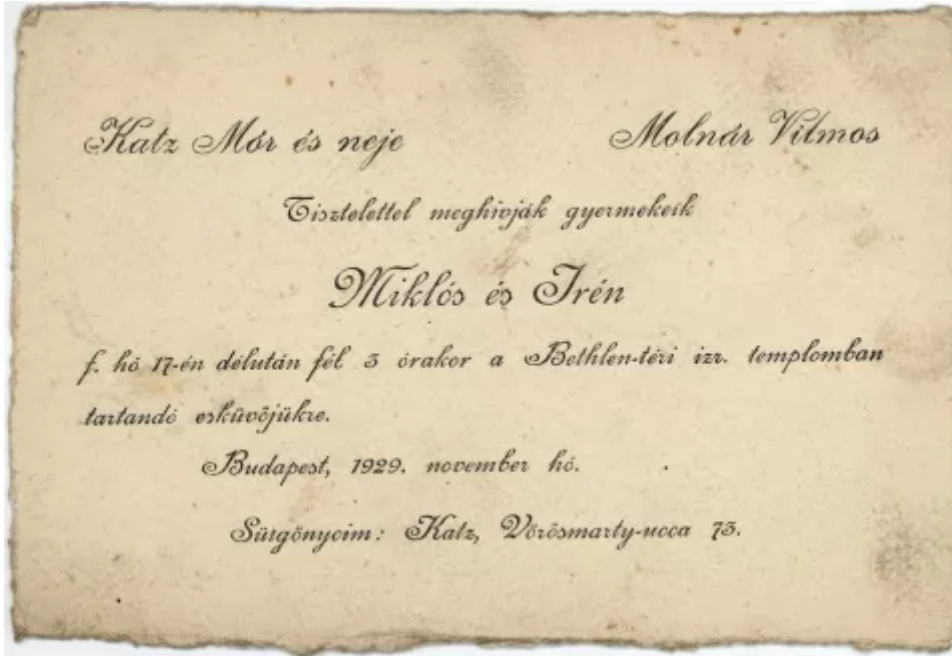 Katz Mór és neje Molnár Vilmos
Tisztelettel meghivják gyermekeik
Miklós és Irén
f. hó 17-én délután fél 3 órakor a Bethlen-téri izr. templomban
tartandó esküvőjükre.
Budapest, 1929. november hó.
Sürgönycim: Katz, Vörösmarty-ucca 73.